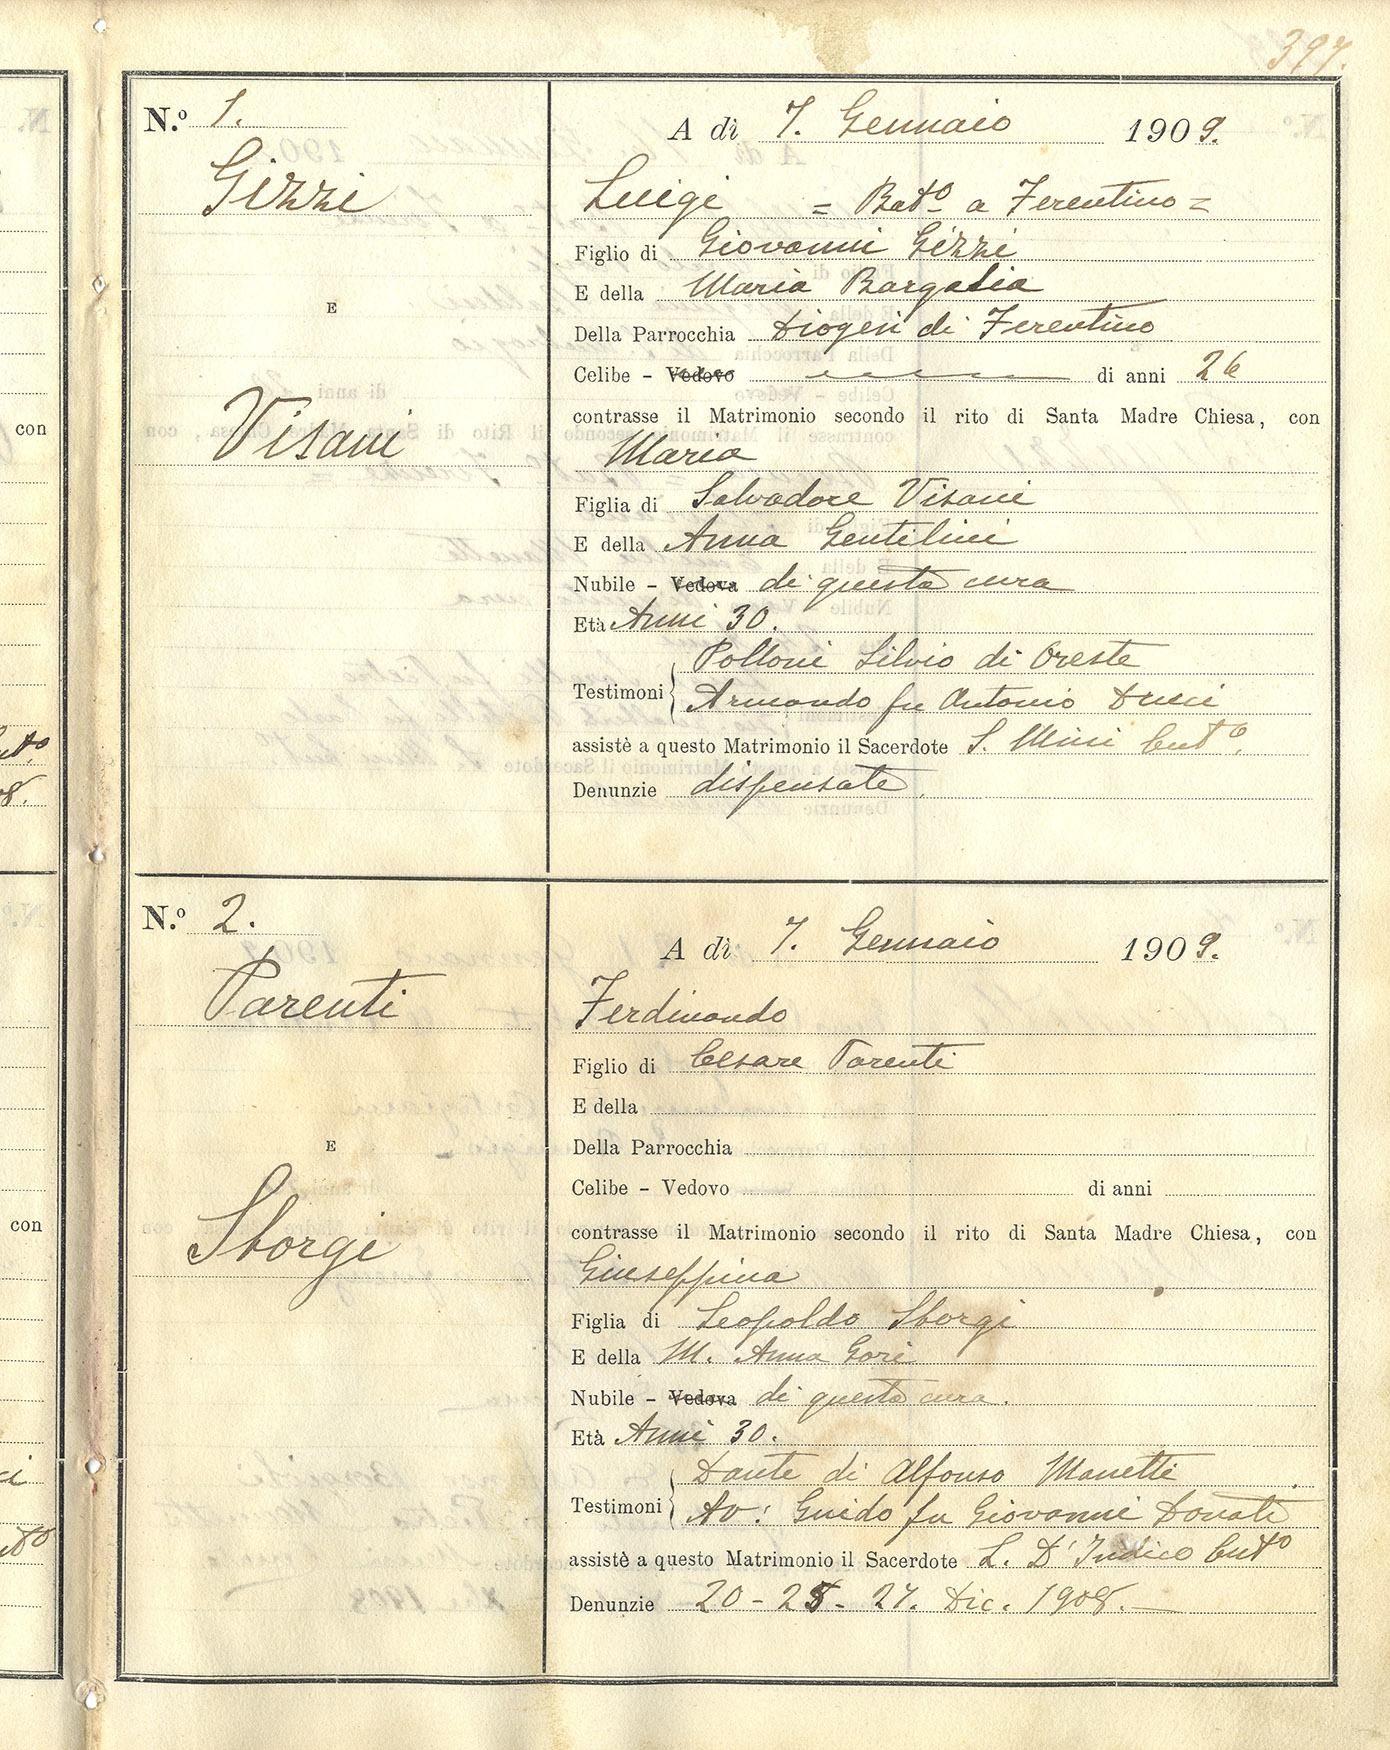 397.
N.º 1.
Gizzi
E
Visani
A dì 7. Gennaio 1909.
Luigi = Batº a Ferentino =
Figlio di Giovanni Gizzi
E della Maria Bargalia
Della Parrocchia Diogeri di Ferentino
Celibe – Vedovo di anni 26
contrasse il Matrimonio secondo il rito di Santa Madre Chiesa, con
Maria
Figlia di Salvadore Visani
E della Anna Gentilini
Nubile – Vedova di questa cura
Età Anni 30.
Testimoni Polloni Silvio di Oreste
Armando fu Antonio Ducci
assistè a questo Matrimonio il Sacerdote S. Mini Curtº.
Denunzie dispensate.
N.º 2.
Parenti
E
Sborgi
A dì 7. Gennaio 1909.
Ferdinando
Figlio di Cesare Parenti
E della
Della Parrocchia
Celibe – Vedovo di anni
contrasse il Matrimonio secondo il rito di Santa Madre Chiesa, con
Giuseppina
Figlia di Leopoldo Sborgi
E della M. Anna Gori
Nubile – Vedova di questa cura.
Età Anni 30.
Testimoni Dante di Alfonso Manetti
Av: Guido fu Giovanni Donati
assistè a questo Matrimonio il Sacerdote L. D'Indico Curtº
Denunzie 20 - 25 - 27. Dic. 1908. —
con
con